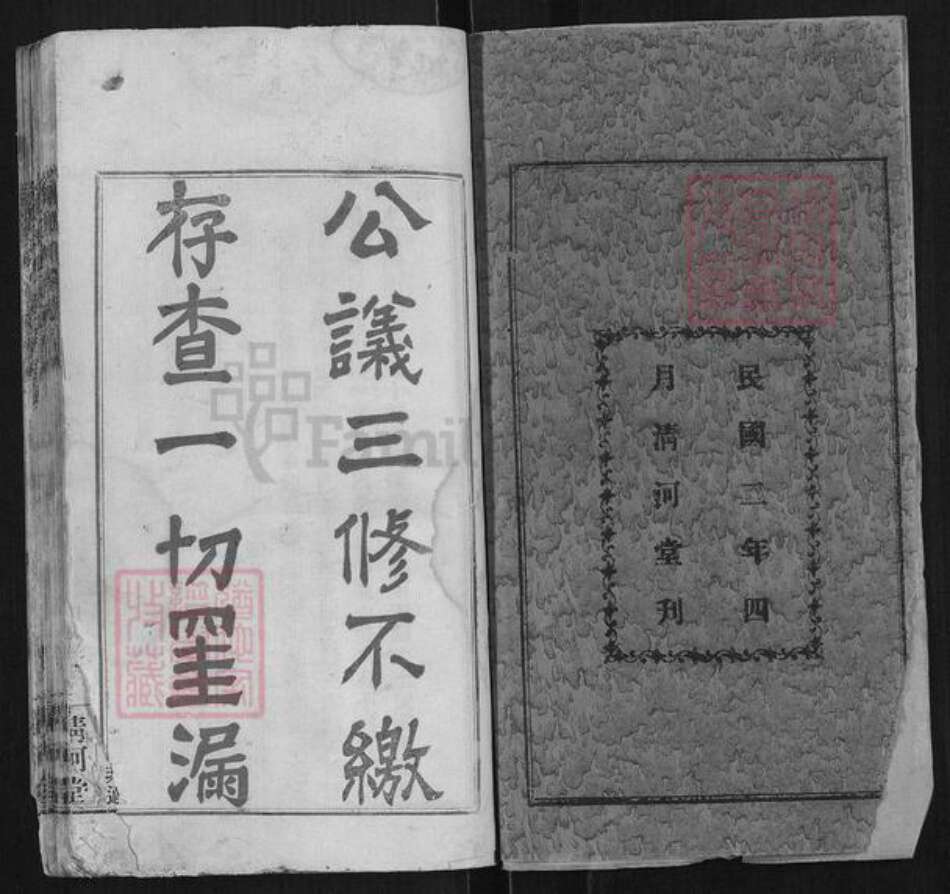 民國二年四
月清河堂刊
公議三修不繳
存查一切罣漏
清河堂